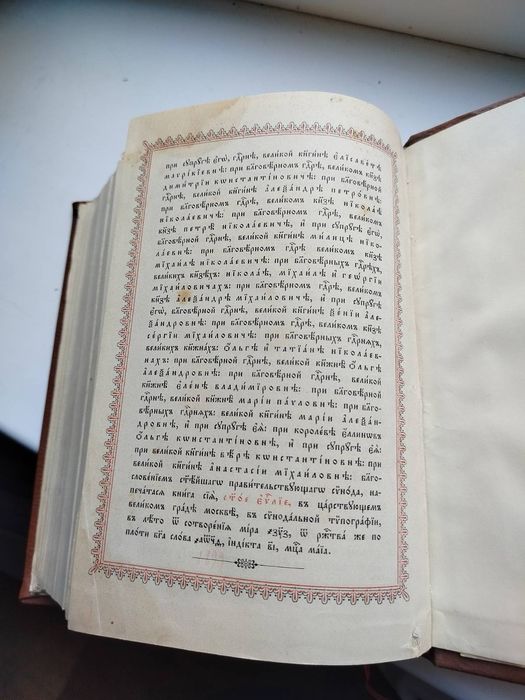 при сꙋпрꙋ́гѣ є҆гѡ̀, гдⷭ҇рнѣ, вели́кой кн҃ги́нѣ є҆лїсаве́тѣ
маѵрїкі́евнѣ: при бл҃говѣ́рномъ гдⷭ҇рѣ, вели́комъ кн҃зѣ
дими́трїи кѡнстанті́новичѣ: при бл҃говѣ́рной
гдⷭ҇рнѣ, вели́кой кн҃ги́нѣ а҆леѯа́ндрѣ петро́внѣ:
при бл҃говѣ́рномъ гдⷭ҇рѣ, вели́комъ кн҃зѣ нїкола́е
нїкола́евичѣ: при бл҃говѣ́рномъ гдⷭ҇рѣ, вели́комъ
кн҃зѣ петрѣ̀ нїкола́евичѣ, и҆ при сꙋпрꙋ́гѣ є҆гѡ̀,
бл҃говѣ́рной гдⷭ҇рнѣ, вели́кой кн҃ги́нѣ мі́лицѣ нїко-
ла́евнѣ: при бл҃говѣ́рномъ гдⷭ҇рѣ вели́комъ кн҃зѣ
мїхаи́лѣ нїкола́евичѣ: при бл҃говѣ́рныхъ гдⷭ҇рѣхъ,
вели́кихъ кн҃зѣ́хъ: нїкола́ѣ, мїхаи́лѣ и҆ гео́ргїи
мїха́йловичахъ: при бл҃говѣ́рномъ гдⷭ҇рѣ, вели́комъ
кн҃зѣ а҆леѯа́ндрѣ мїха́йловичѣ, и҆ при сꙋпрꙋ́гѣ
є҆гѡ̀, бл҃говѣ́рной гдⷭ҇рнѣ, вели́кой кн҃ги́нѣ ѯе́нїи а҆ле-
ѯа́ндровнѣ: при бл҃говѣ́рномъ гдⷭ҇рѣ, вели́комъ кн҃зѣ
се́ргїи мїха́йловичѣ: при бл҃говѣ́рныхъ гдⷭ҇рняхъ,
вели́кихъ кн҃жна́хъ: ѻ҆́льгѣ и҆ татїа́нѣ нїкола́ев-
нахъ: при бл҃говѣ́рной гдⷭ҇рнѣ, вели́кой кн҃жнѣ̀ ѻ҆́льгѣ
а҆леѯа́ндровнѣ: при бл҃говѣ́рной гдⷭ҇рнѣ, вели́кой
кн҃жнѣ̀ є҆ле́нѣ владимі́ровнѣ: при бл҃говѣ́рной
гдⷭ҇рнѣ, вели́кой кн҃ги́нѣ марі́и па́ѵловнѣ: при бл҃го-
вѣ́рныхъ гдⷭ҇рняхъ: вели́кой кн҃ги́нѣ марі́и а҆леѯа́н-
дровнѣ, и҆ при сꙋпрꙋ́гѣ є҆ѧ̀: при короле́вѣ є҆́ллинѡвъ
ѻ҆́льгѣ кѡнстанті́новнѣ, и҆ при сꙋпрꙋ́гѣ є҆ѧ̀:
при вели́кой кн҃ги́нѣ вѣ́рѣ кѡнстанті́новнѣ: при
вели́кой кн҃ги́нѣ а҆настасі́и мїха́йловнѣ: бл҃го-
слове́нїемъ ст҃ѣ́йшагѡ прави́тельствꙋющагѡ сѷно́да, на-
печа́тасѧ кни́га сїѧ̀, ст҃о́е є҆ѵⷢ҇лїе, въ ца́рствꙋющемъ
вели́комъ гра́дѣ москвѣ̀, въ сѷнода́льной тѷпогра́фїи,
въ лѣ́то ѿ сотворе́нїѧ мі́ра ҂зу҃в, ѿ рж҇тва́ же по
пло́ти бг҃а сло́ва ҂аѡч҃д, і҆ндї́кта в҃і, мцⷭ҇а ма́їа.